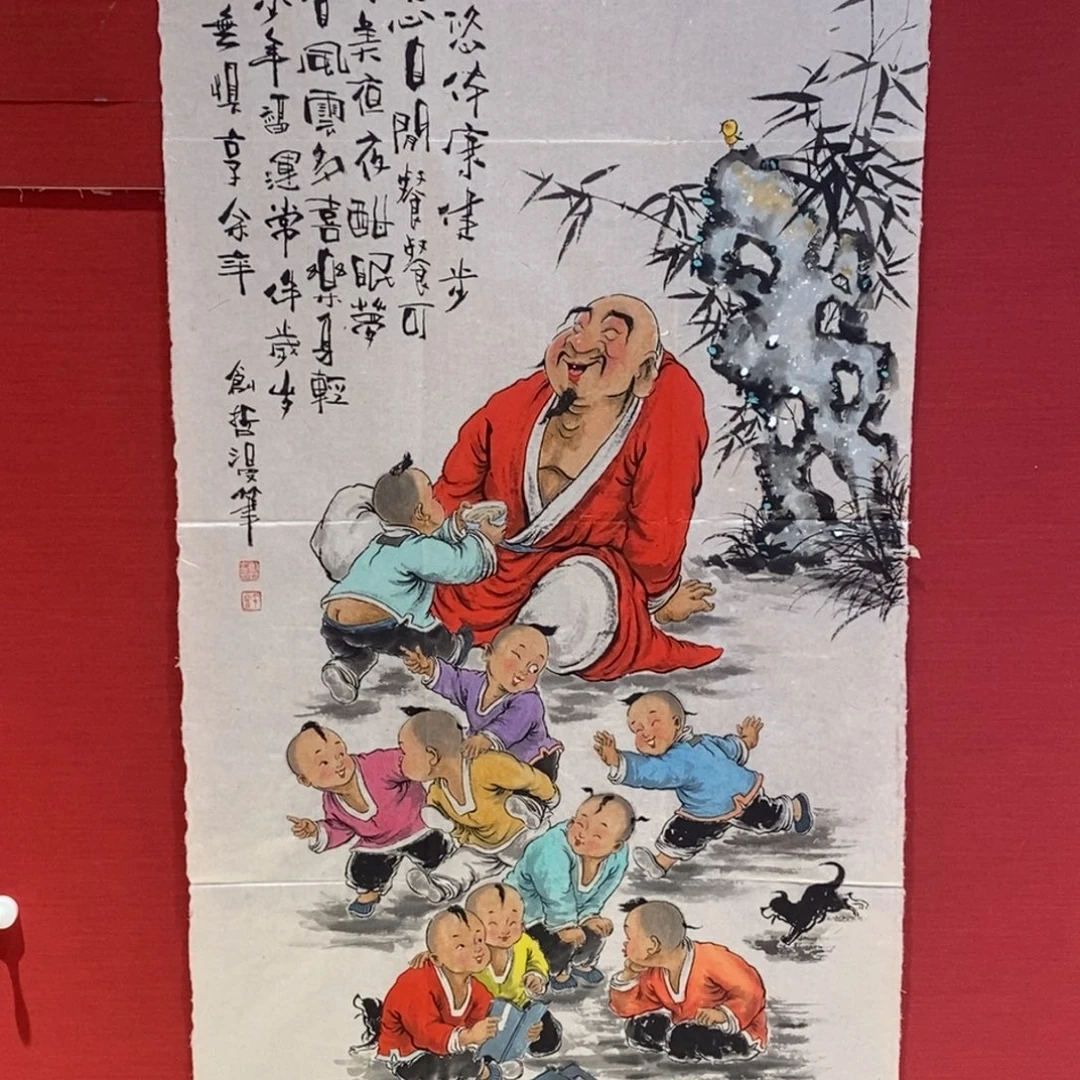 悠体康健步
心自閒餐餐可
美夜夜酣眠夢
風雲多喜樂身輕
年福運常伴歲岁
無懼享余年
創哲漫筆